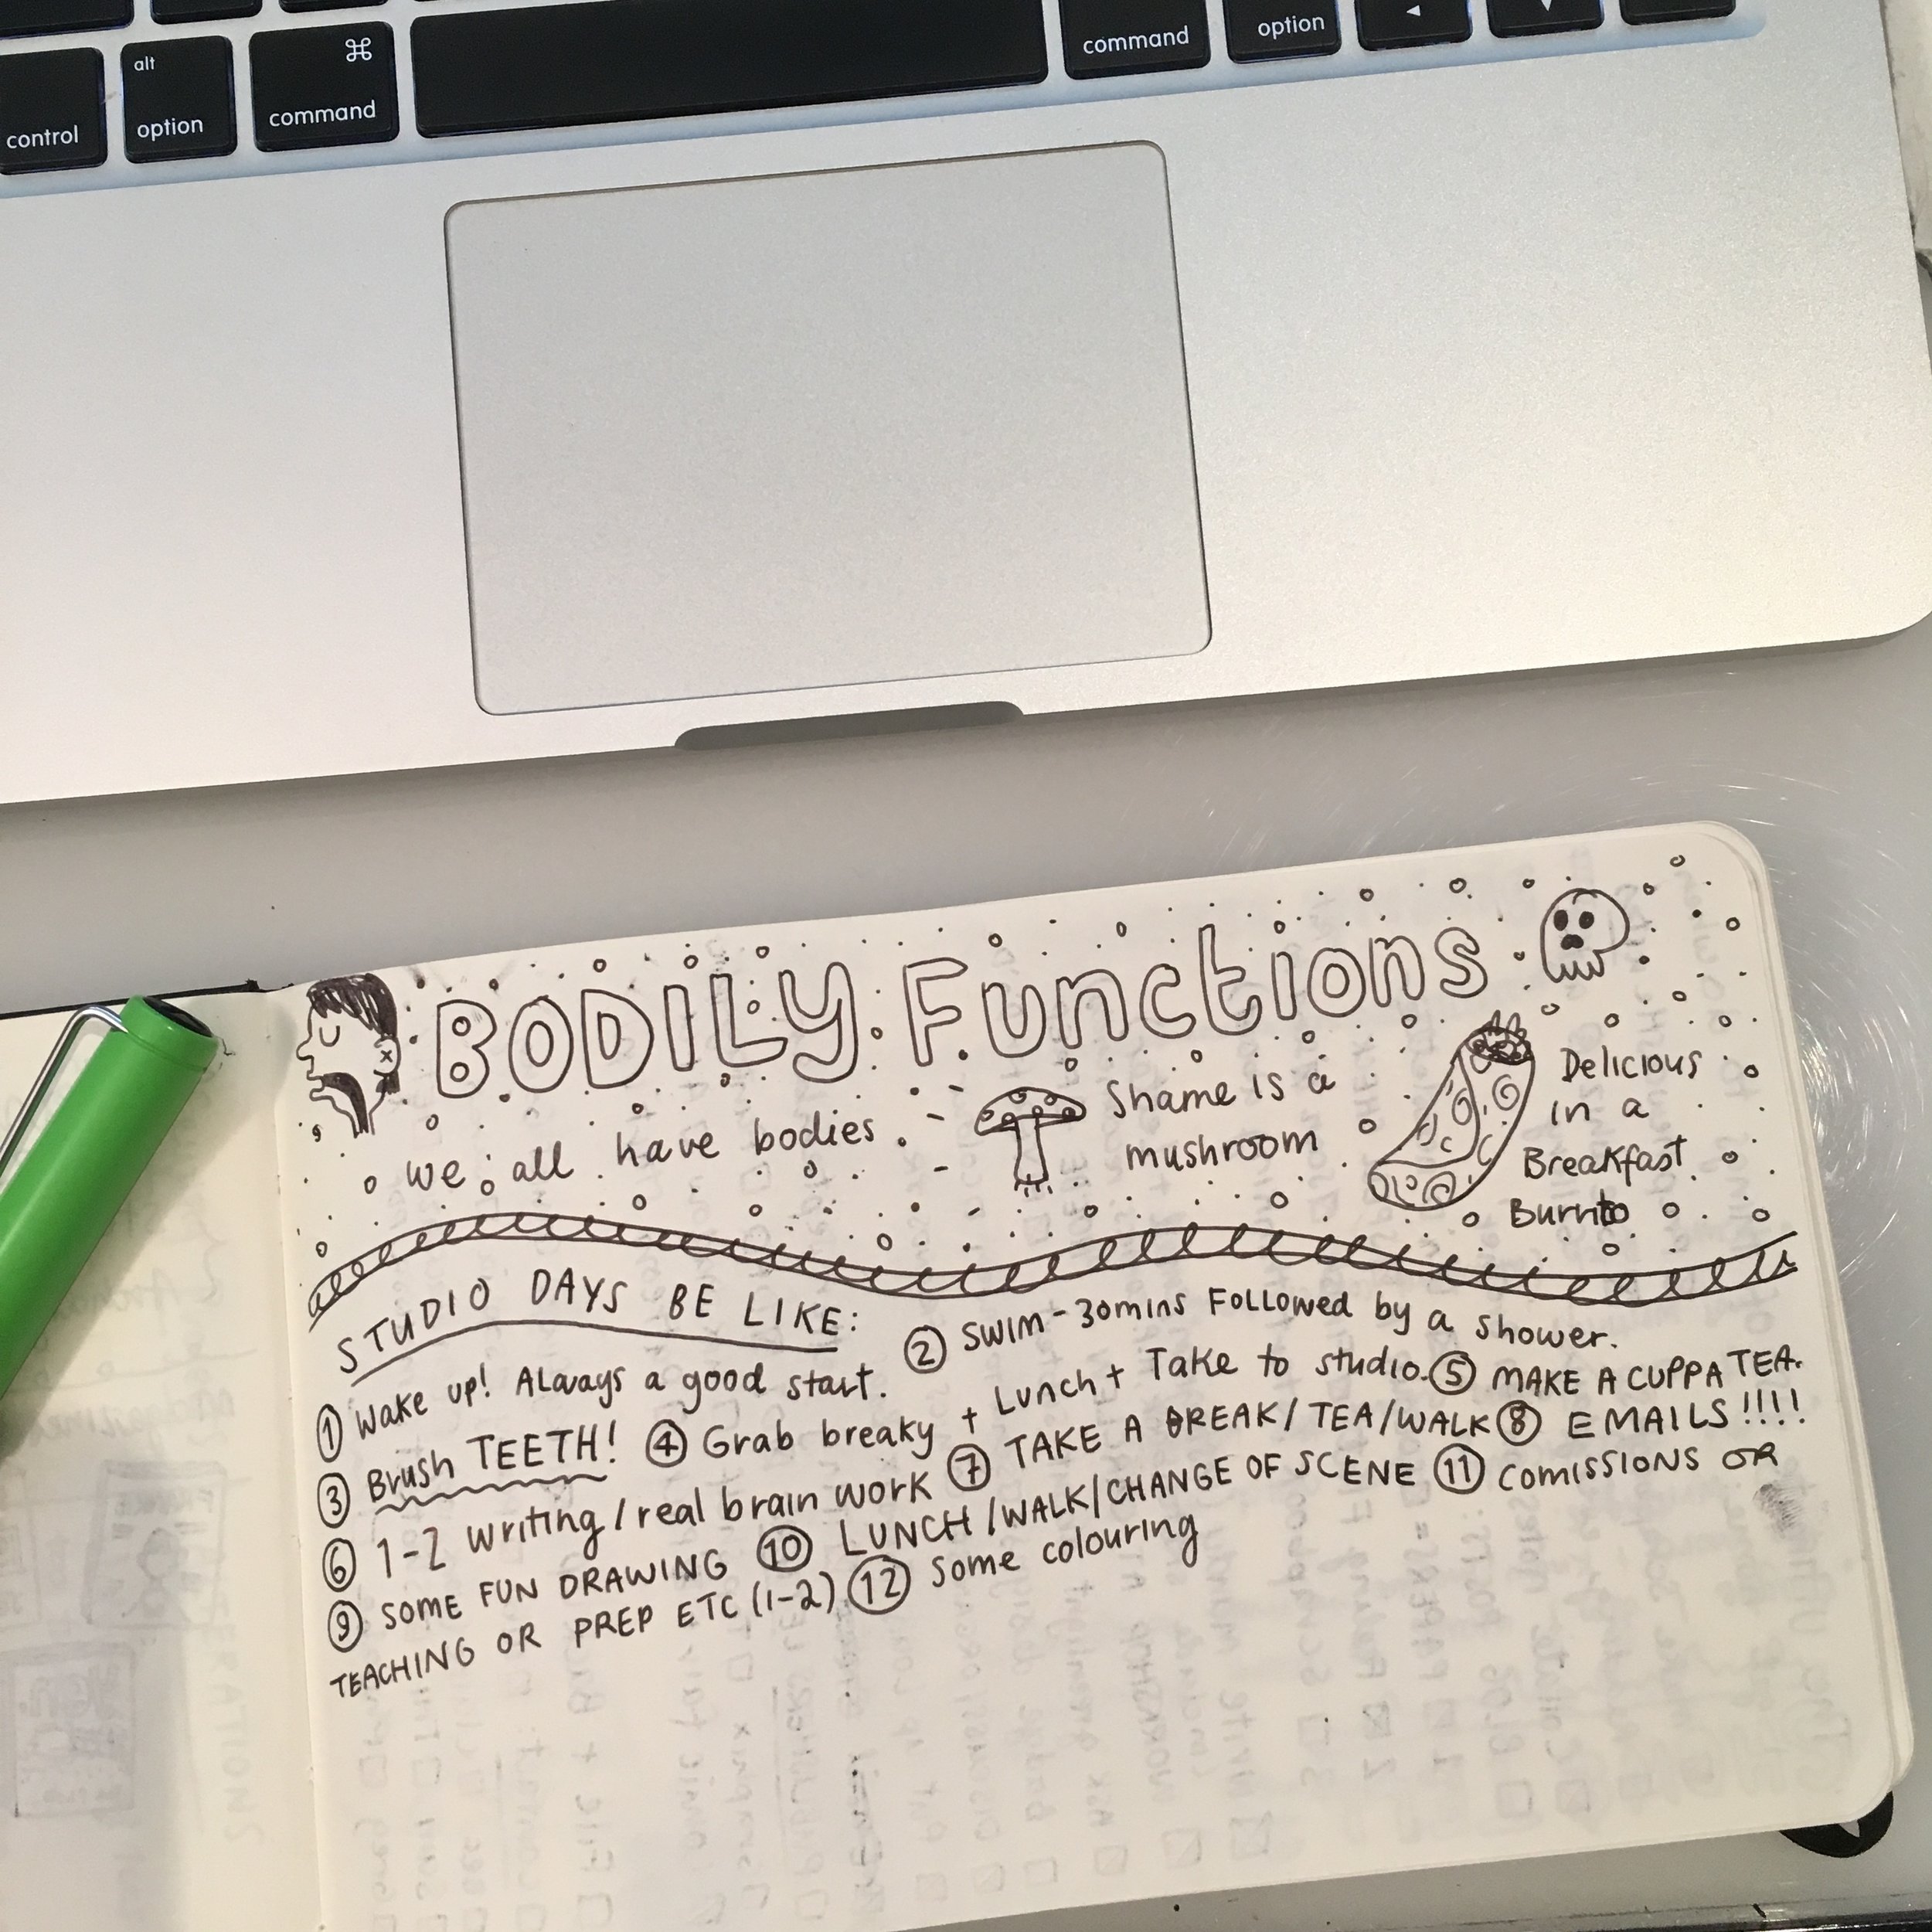 alt
⌘
control
option
command
command
option
BODILY Functions
we all have bodies.
Shame is a
mushroom
Delicious
in a
Breakfast
Burrito
STUDIO DAYS BE LIKE:
① Wake up! Always a good start. ② SWIM - 30mins Followed by a shower.
③ Brush TEETH! ④ Grab breaky + Lunch + Take to studio. ⑤ MAKE A CUPPA TEA.
⑥ 1-2 writing/real brain work ⑦ TAKE A BREAK/TEA/WALK ⑧ EMAILS!!!!
⑨ SOME FUN DRAWING ⑩ LUNCH/WALK/CHANGE OF SCENE ⑪ COMISSIONS OR
TEACHING OR PREP ETC (1-2) ⑫ Some colouring